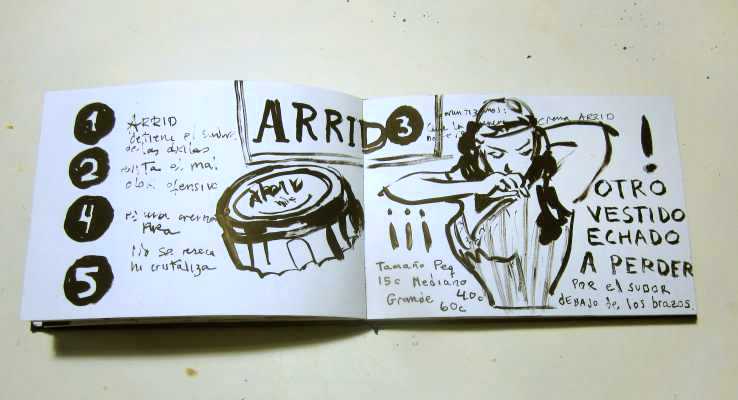 1
ARRID
detiene el sudor
de las axilas
2
evita el mal
olor ofensivo
4
es una crema
pura
5
No se reseca
ni cristaliza
ARRID
ARRID
3
crema ARRID
¡¡¡
!
OTRO
VESTIDO
ECHADO
A PERDER
POR el SUDOR
DEBAJO de los brazos.
Tamaño Peq
15c Mediano
40c
Grande
60c